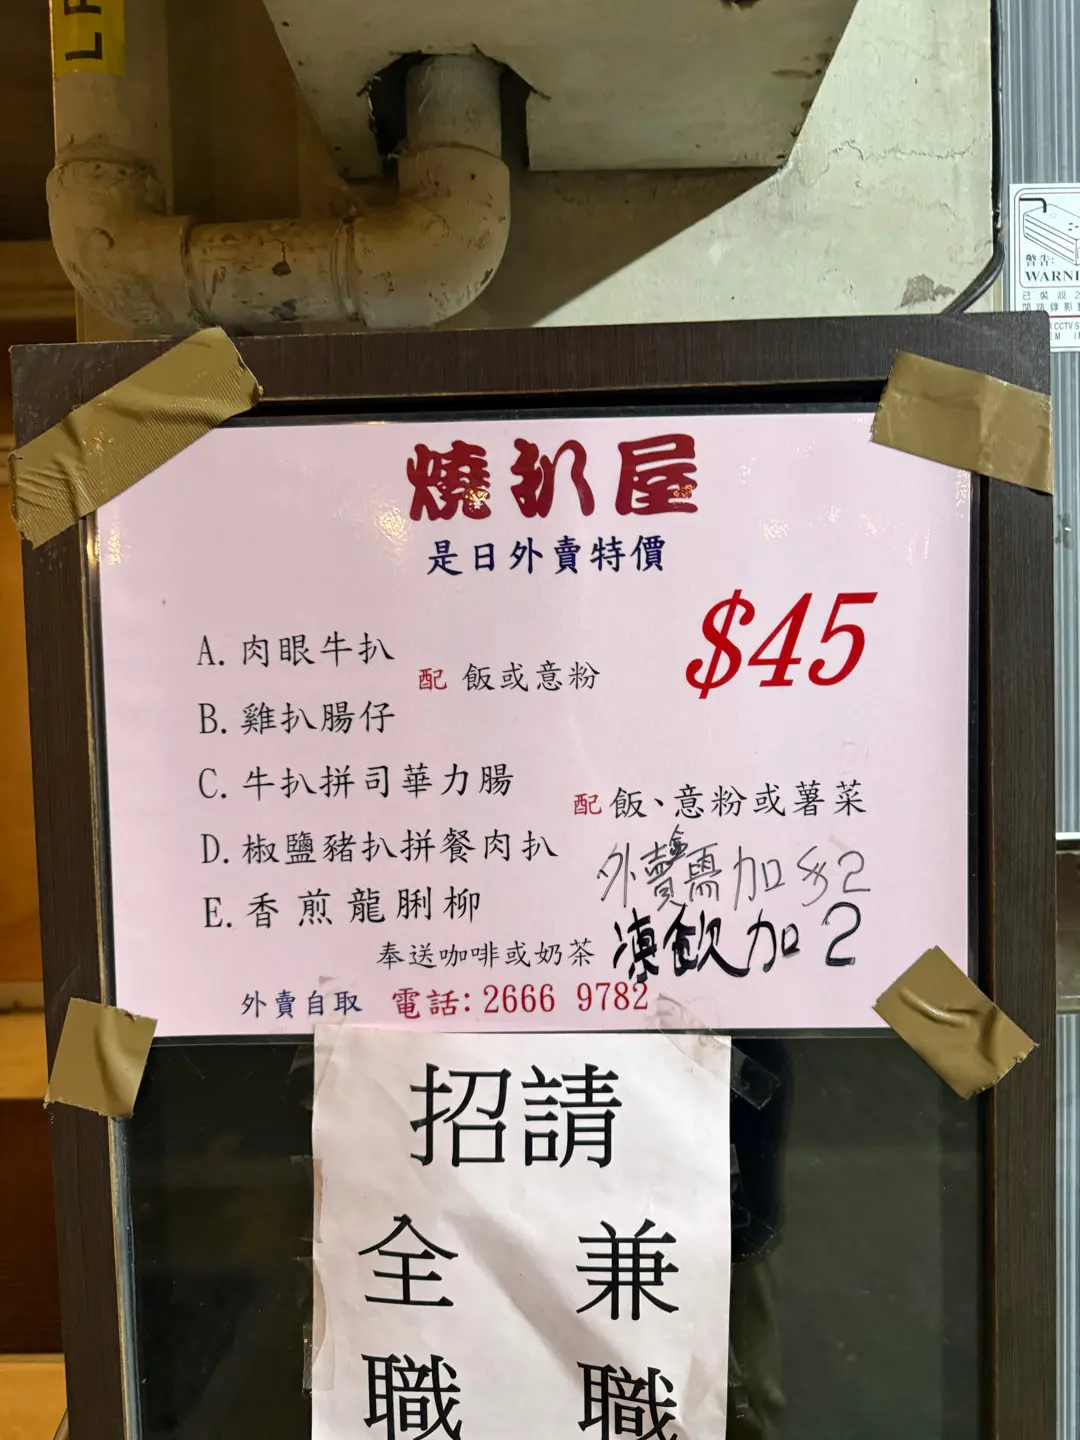 警告:
WARNI
燒扒屋
是日外賣特價
$45
A. 肉眼牛扒
配 飯或意粉
B. 雞扒腸仔
C. 牛扒拼司華力腸
配 飯、意粉或薯菜
D. 椒鹽豬扒拼餐肉扒
外賣盒需加$2
E. 香煎龍脷柳
奉送咖啡或奶茶 凍飲加2
外賣自取 電話: 2666 9782
招請
全職
兼職